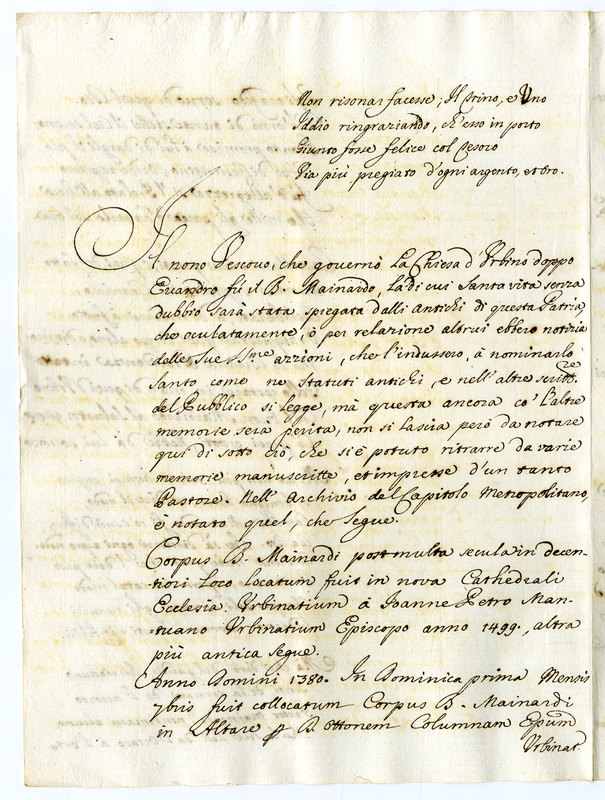 Non risonar facesse; Il Crino, e Uno
Iddio ringraziando, ch'esso in porto
Giunto forse felice col Tesoro
Via più pregiato d'ogni argento, et oro.
Il nono Vescouo, che governò La Chiesa d'Urbino doppo
Evandro fu il B. Mainardo, La di cui Santa vita senza
dubbio sarà stata spiegata dalli antichi di questa Patria,
che oculatamente, ò per relazione altrui ebbero notizia
delle Sue SSme azzioni, che l'indussero, à nominarlo
Santo come ne Statuti antichi, e nell'altre scritt.re
del Pubblico si legge, mà questa ancora co' L'altre
memorie serà perita, non si lascia però da notare
qui di sotto ciò, che si è potuto ritrarre da varie
memorie manuscritte, et impresse d'un tanto
Pastore. Nell'Archivio del Capitolo Metropolitano,
è notato quel, che segue.
Corpus B. Mainardi post multa secula in decen-
-tiori Loco locatum fuit in nova Cathedrali
Ecclesia Urbinatium à Ioanne Petro Man-
-tuano Urbinatium Episcopo anno 1499., altra
più antica segue.
Anno Domini 1380. In Dominica prima Mensis
7bris fuit collocatum Corpus B. Mainardi
in Altare p B. Ottonem Columnam Epum
Urbinat